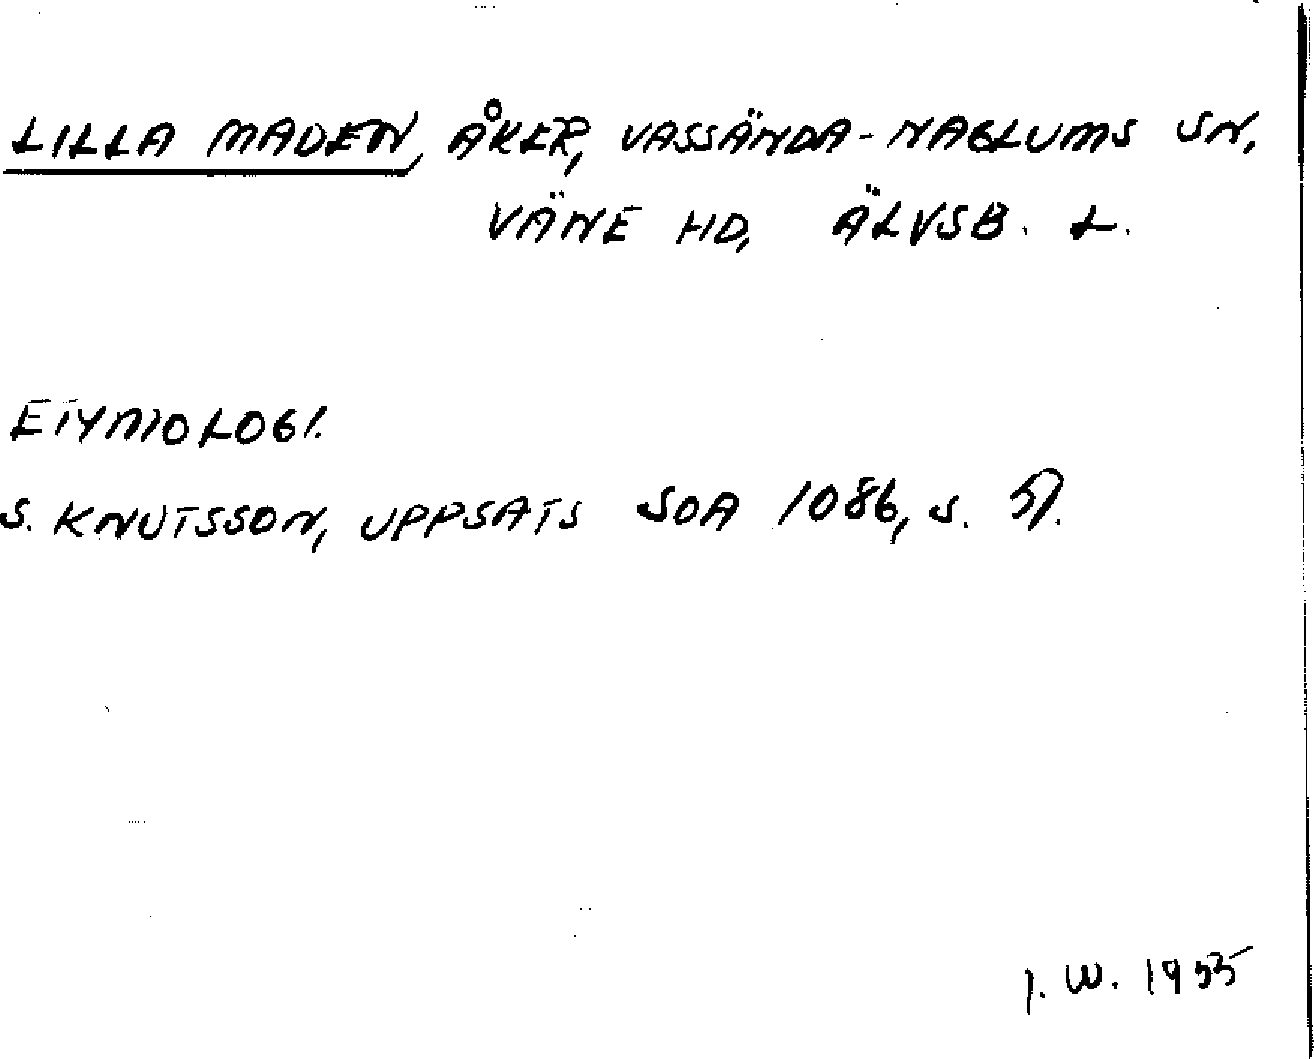 LILLA MADEN, ÅKER, VASSÄNDA-NAGLUMS SN,
VÄNE HD, ÄLVSB. L.
ETYMOLOGI.
S. KNUTSSON, UPPSATS SOA 1086, S.
I. W. 1955